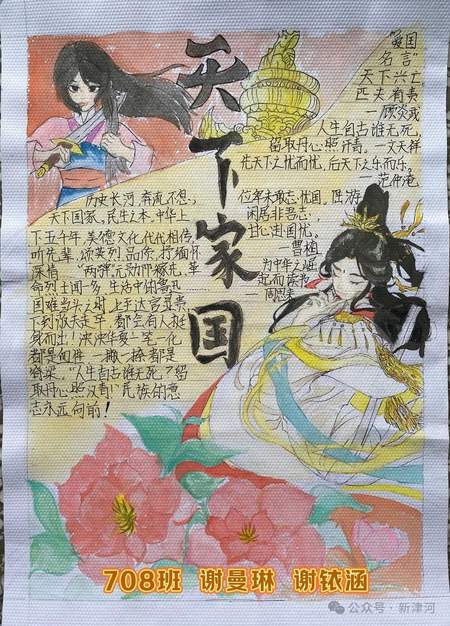 天下家国
"爱国
名言"
天下兴亡
匹夫有责
—顾炎武
人生自古谁无死,
留取丹心照汗青。—文天祥
先天下之忧而忧,后天下之乐而乐。
—范仲淹
位卑未敢忘忧国。陆游
闲居非吾志,
甘心赴国忧。
—曹植
为中华之崛
起而读书
—周恩来
历史长河,奔流不息、
天下国家、民生之本,中华上
下五千年,美德文化代代相传,
听先辈,颂英烈,品原,抒缅怀
深情 "两弹"元勋邓稼先,革
命烈士闻一多,生活中
国难当头之时,上于达官显贵
下到贩夫走卒,都会有人挺
身而出!泱泱华夏一笔一化
都是向往,一撇一捺都是
脊梁。"人生自古谁无死?留
取丹心照汗青!"民族的意
志永远向前!
708班 谢曼琳 谢铱涵
公众号·新津河